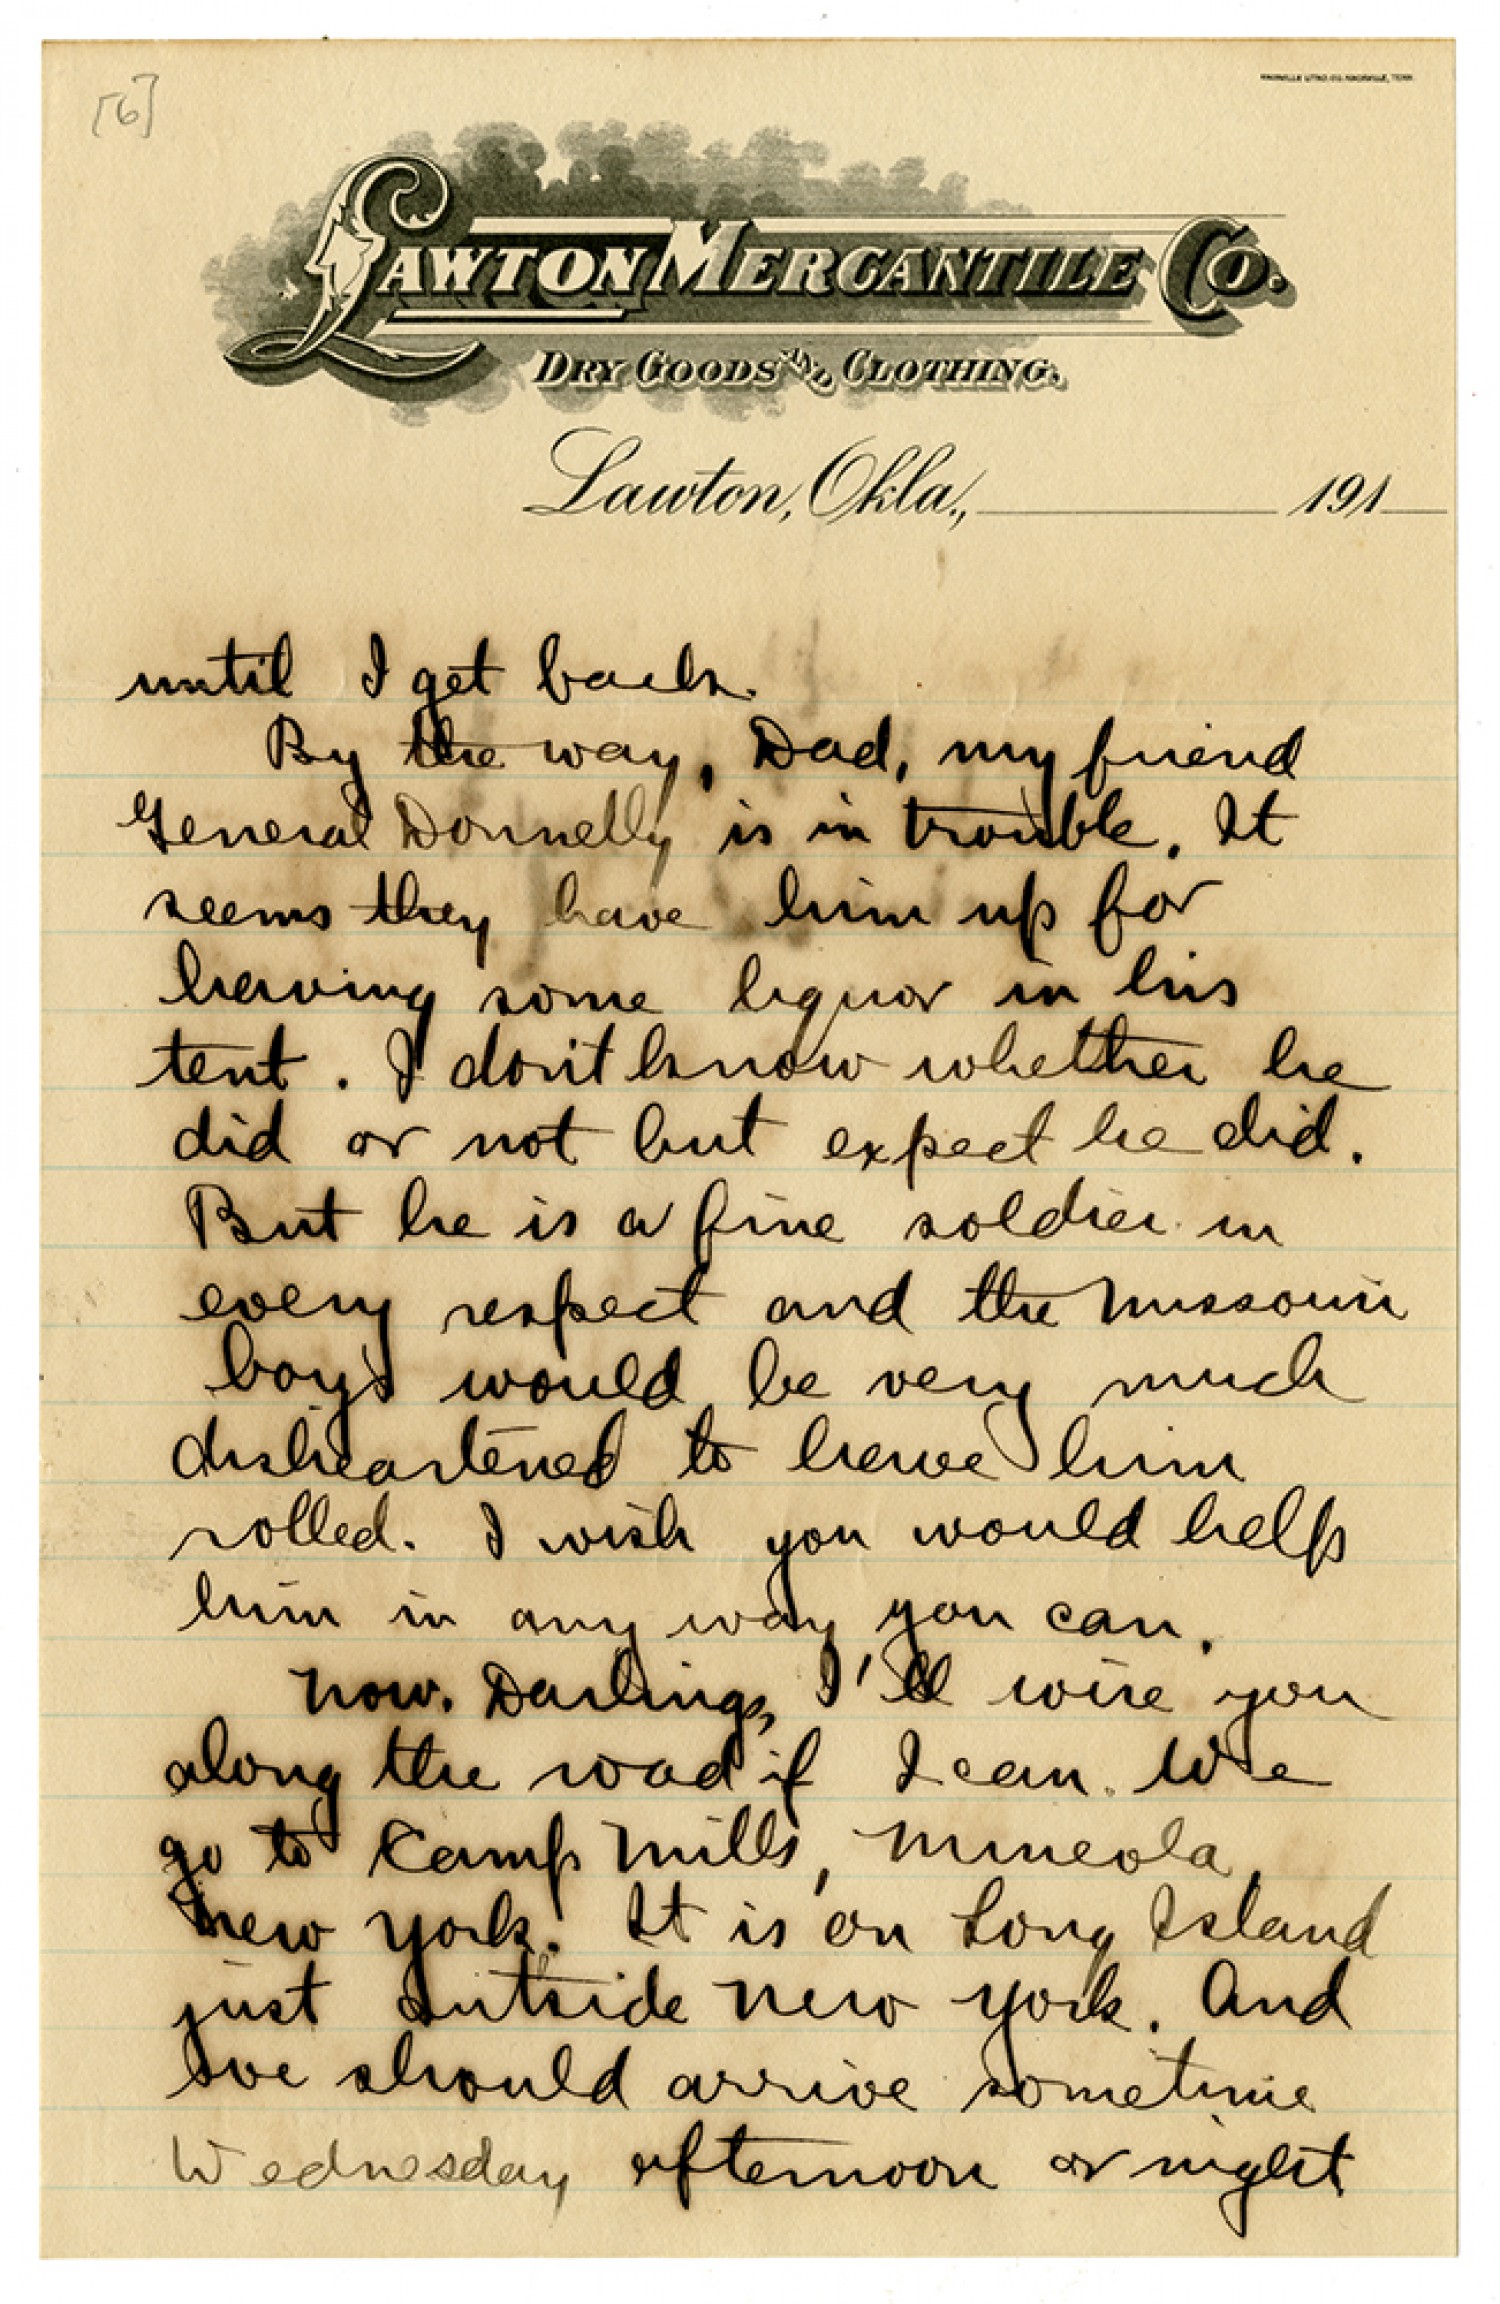 [6]
KNOXVILLE LITHO. CO. KNOXVILLE, TENN.
LAWTON MERCANTILE CO.
DRY GOODS AND CLOTHING.
Lawton, Okla., 191
until I get back.
By the way, Dad, my friend
General Donnelly is in trouble. It
seems they have him up for
having some liquor in his
tent. I don't know whether he
did or not but expect he did.
But he is a fine soldier in
every respect and the Missouri
boys would be very much
disheartened to have him
rolled. I wish you would help
him in any way you can.
Now. Darlings, I'll wire you
along the road if I can. We
go to Camp Mills, Mineola,
New York. It is on Long Island
just outside New York. And
we should arrive sometime
Wednesday afternoon or night